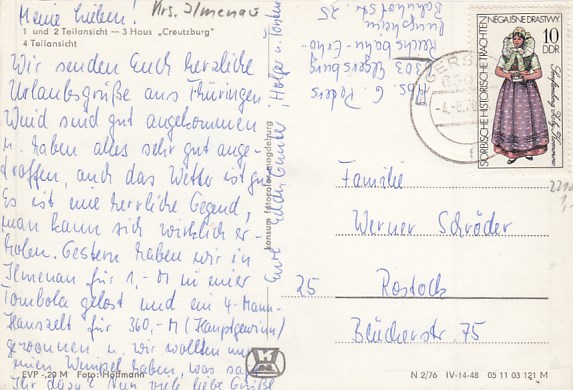 Meine Lieben! Krs. Ilmenau
1 und 2 Teilansicht – 3 Haus „Creutzburg"
4 Teilansicht
Wir senden Euch herzliche
Urlaubsgrüße aus Thüringen.
sind gut angekommen
u. haben alles sehr gut ange-
troffen, auch das Wetter ist gut.
Es ist eine herrliche Gegend,
man kann sich wirklich er-
holen. Gestern haben wir in
Ilmenau für 1,-M in einer
Tombola gelost und ein 4-Mann-
Hauszelt für 360,-M (Hauptgewinn)
gewonnen u. wir wollten nur
einen Wimpel haben, was sagt
Ihr dazu? Nun viele liebe Grüße
Eure Günter, Holger u. Torsten
konsum fotocolor magdeburg
Abs. G. Peters
6303 Elgersburg
Bahnhofstr. 25
NĚGAJŠNE DRASTWY
10
DDR
SORBISCHE HISTORISCHE TRACHTEN
ELGERSBURG
-4.-8.78
Familie
Werner Schröder
25 Rostock
Blücherstr. 75
EVP -,20 M Foto: Hoffmann
N 2/76 IV-14-48 05 11 03 121 M